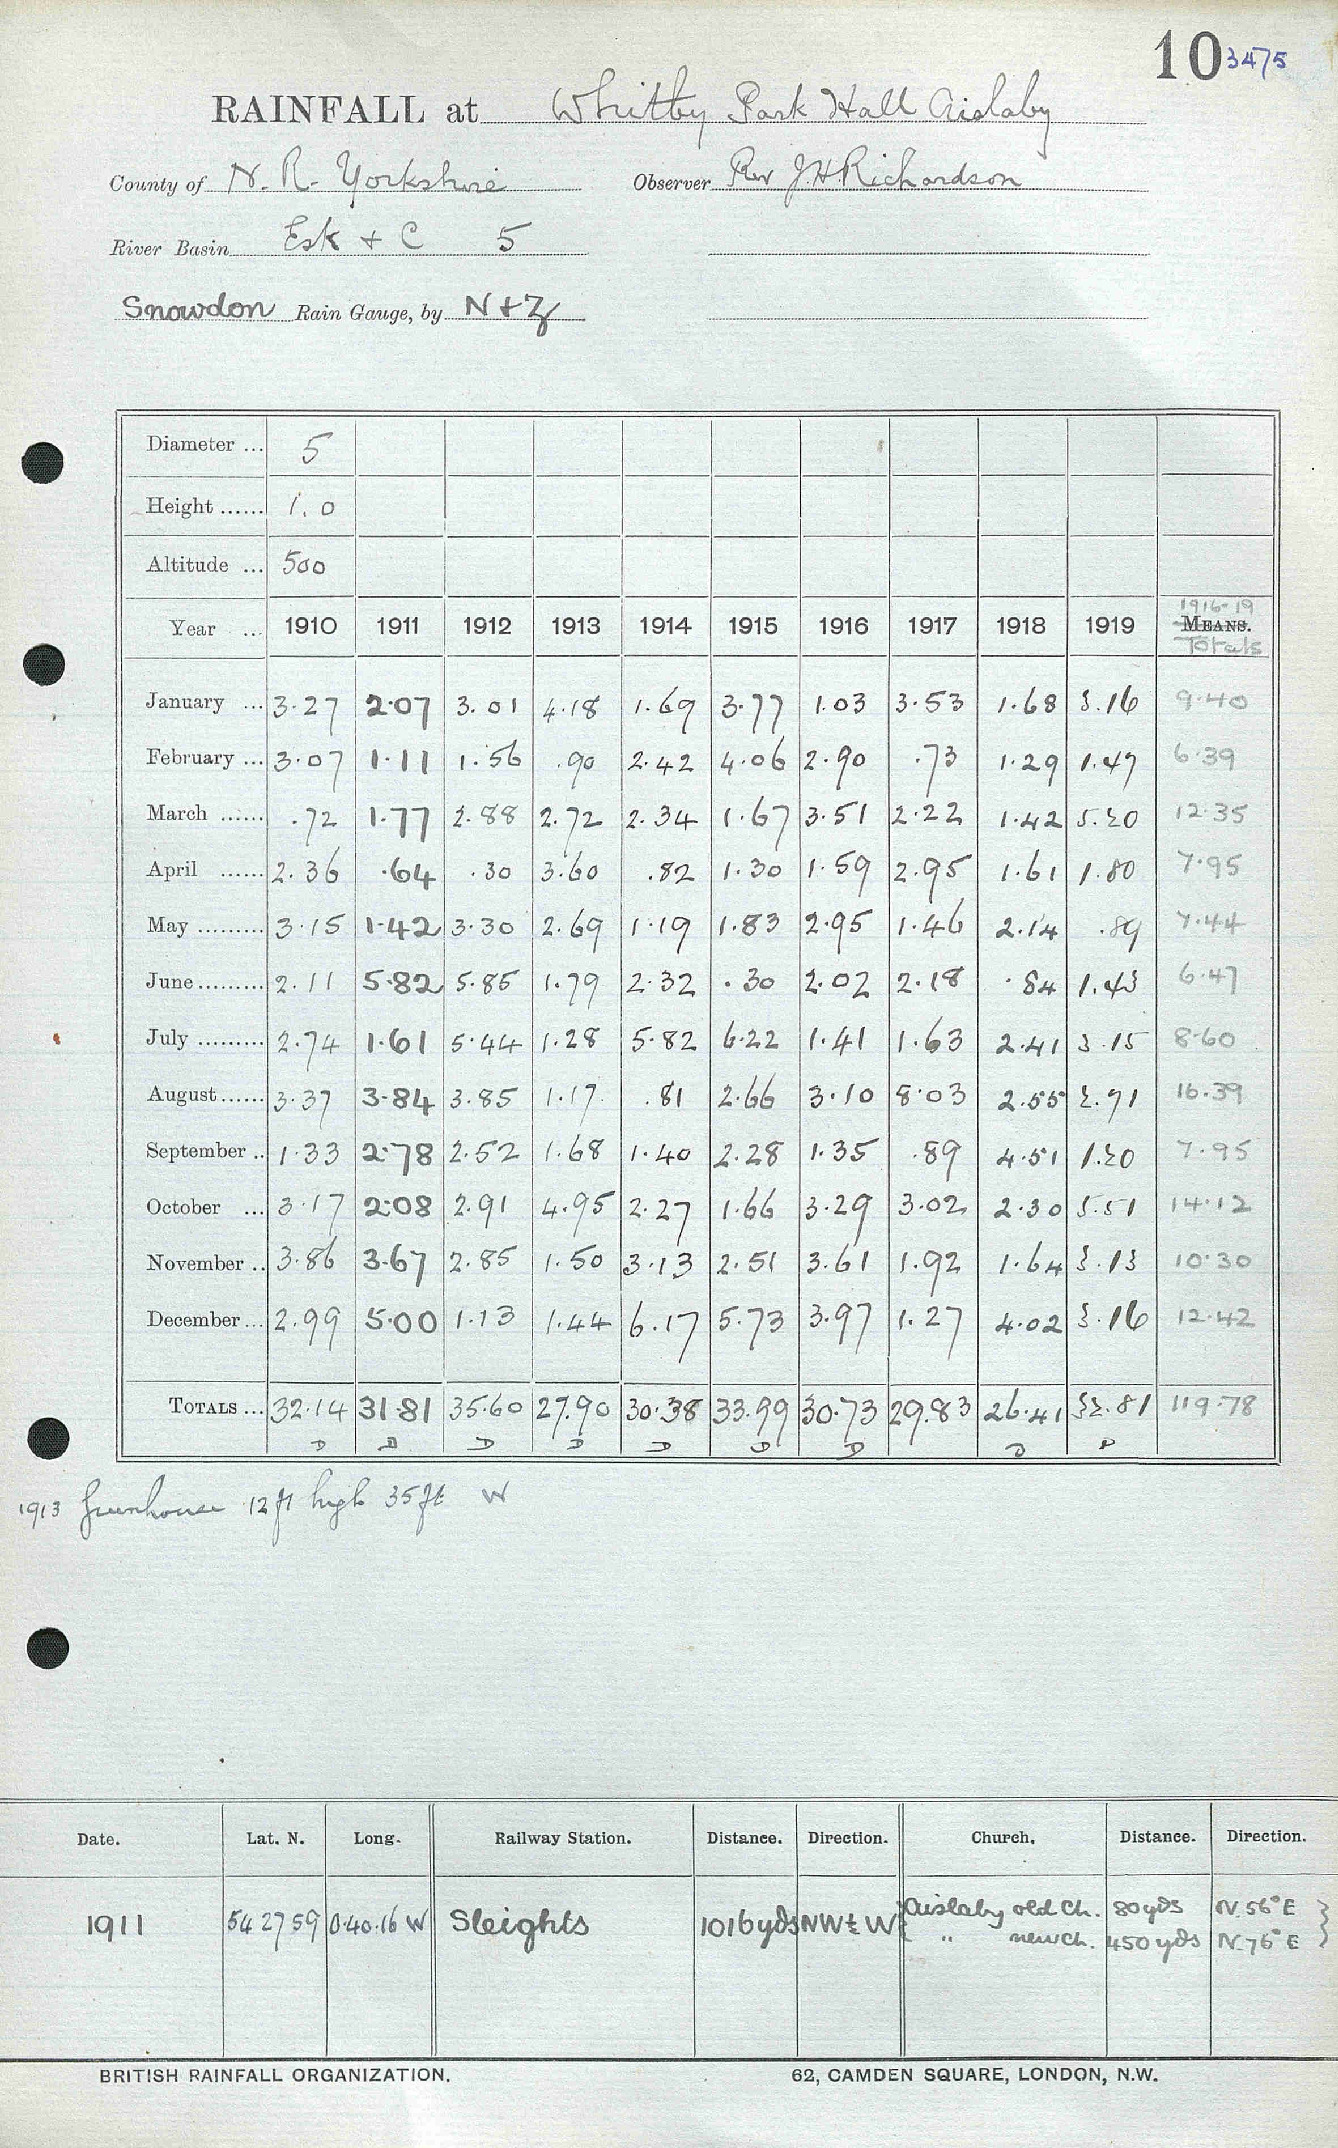 10 3475
RAINFALL at Whitby Park Hall Aislaby
County of N. R. Yorkshire Observer Rev J.H. Richardson
River Basin Esk + C 5
Snowdon Rain Gauge, by N + Z
Diameter ... 5
Height ...... 1.0
Altitude ... 500
Year ... 1910 1911 1912 1913 1914 1915 1916 1917 1918 1919 1916-19 MEANS. Totals
January ... 3.27 2.07 3.01 4.18 1.69 3.77 1.03 3.53 1.68 3.16 9.40
February ... 3.07 1.11 1.56 .90 2.42 4.06 2.90 .73 1.29 1.47 6.39
March ...... .72 1.77 2.88 2.72 2.34 1.67 3.51 2.22 1.42 5.20 12.35
April ...... 2.36 .64 .30 3.60 .82 1.30 1.59 2.95 1.61 1.80 7.95
May ......... 3.15 1.42 3.30 2.69 1.19 1.83 2.95 1.46 2.14 .89 7.44
June ......... 2.11 5.82 5.85 1.79 2.32 .30 2.02 2.18 .84 1.43 6.47
July ......... 2.74 1.61 5.44 1.28 5.82 6.22 1.41 1.63 2.41 3.15 8.60
August ...... 3.37 3.84 3.85 1.17 .81 2.66 3.10 8.03 2.55 2.71 16.39
September .. 1.33 2.78 2.52 1.68 1.40 2.28 1.35 .89 4.51 1.20 7.95
October ... 3.17 2.08 2.91 4.95 2.27 1.66 3.29 3.02 2.30 5.51 14.12
November .. 3.86 3.67 2.85 1.50 3.13 2.51 3.61 1.92 1.64 3.13 10.30
December ... 2.99 5.00 1.13 1.44 6.17 5.73 3.97 1.27 4.02 3.16 12.42
TOTALS ... 32.14 31.81 35.60 27.90 30.38 33.99 30.73 29.83 26.41 32.81 119.78
D D D D D D D D D
1913 Greenhouse 12 ft high 35 ft W
Date. Lat. N. Long. Railway Station. Distance. Direction. Church. Distance. Direction.
1911 54 27 59 0.40.16 W Sleights 1016 yds NW½W Aislaby old Ch. 80 yds N 56° E
" new ch. 450 yds N 76° E
BRITISH RAINFALL ORGANIZATION. 62, CAMDEN SQUARE, LONDON, N.W.